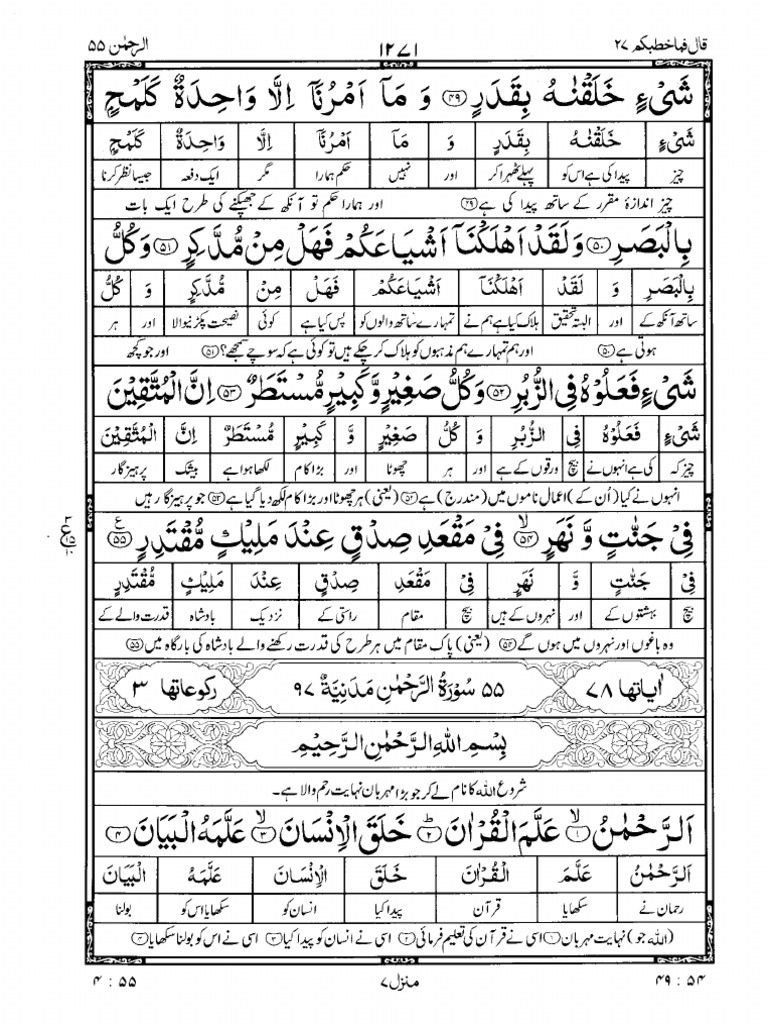 قال فما خطبكم ٢٧ ١٢٧١ الرحمٰن ٥٥
شَیۡءٍ خَلَقۡنٰہُ بِقَدَرٍ ﴿۴۹﴾ وَ مَاۤ اَمۡرُنَاۤ اِلَّا وَاحِدَۃٌ کَلَمۡحٍۭ
شَیۡءٍ خَلَقۡنٰہُ بِقَدَرٍ وَ مَاۤ اَمۡرُنَاۤ اِلَّا وَاحِدَۃٌ کَلَمۡحٍۭ
چیز پیدا کی ہے اس کو پہلے ٹھہرا کر اور نہیں حکم ہمارا مگر ایک دفعہ جیسا نظر کرنا
چیز اندازۂ مقرر کے ساتھ پیدا کی ہے ﴿۴۹﴾ اور ہمارا حکم تو آنکھ کے جھپکنے کی طرح ایک بات
بِالۡبَصَرِ ﴿۵۰﴾ وَ لَقَدۡ اَہۡلَکۡنَاۤ اَشۡیَاعَکُمۡ فَہَلۡ مِنۡ مُّدَّکِرٍ ﴿۵۱﴾ وَ کُلُّ
بِالۡبَصَرِ وَ لَقَدۡ اَہۡلَکۡنَاۤ اَشۡیَاعَکُمۡ فَہَلۡ مِنۡ مُّدَّکِرٍ وَ کُلُّ
ساتھ آنکھ کے اور البتہ تحقیق ہلاک کیا ہے ہم نے تمہارے ساتھ والوں کو پس کیا ہے کوئی نصیحت پکڑنیوالا اور ہر
ہوتی ہے ﴿۵۰﴾ اور ہم تمہارے ہم مذہبوں کو ہلاک کر چکے ہیں تو کوئی ہے کہ سوچے سمجھے؟ ﴿۵۱﴾ اور جو کچھ
شَیۡءٍ فَعَلُوۡہُ فِی الزُّبُرِ ﴿۵۲﴾ وَ کُلُّ صَغِیۡرٍ وَّ کَبِیۡرٍ مُّسۡتَطَرٌ ﴿۵۳﴾ اِنَّ الۡمُتَّقِیۡنَ
شَیۡءٍ فَعَلُوۡہُ فِی الزُّبُرِ وَ کُلُّ صَغِیۡرٍ وَّ کَبِیۡرٍ مُّسۡتَطَرٌ اِنَّ الۡمُتَّقِیۡنَ
چیز کہ کی ہے انہوں نے بیچ ورقوں کے ہے اور ہر چھوٹا اور بڑا کام لکھا ہوا ہے بیشک پرہیزگار
انہوں نے کیا (اُن کے) اعمال ناموں میں (مندرج) ہے ﴿۵۲﴾ (یعنی) ہر چھوٹا اور بڑا کام لکھ دیا گیا ہے ﴿۵۳﴾ جو پرہیزگار ہیں
فِیۡ جَنّٰتٍ وَّ نَہَرٍ ﴿ۙ۵۴﴾ فِیۡ مَقۡعَدِ صِدۡقٍ عِنۡدَ مَلِیۡکٍ مُّقۡتَدِرٍ ﴿٪۵۵﴾
فِیۡ جَنّٰتٍ وَّ نَہَرٍ فِیۡ مَقۡعَدِ صِدۡقٍ عِنۡدَ مَلِیۡکٍ مُّقۡتَدِرٍ
بیچ بہشتوں کے اور نہروں کے ہیں بیچ مقام راستی کے نزدیک بادشاہ قدرت والے کے
وہ باغوں اور نہروں میں ہوں گے ﴿۵۴﴾ (یعنی) پاک مقام میں ہر طرح کی قدرت رکھنے والے بادشاہ کی بارگاہ میں ﴿۵۵﴾
اٰیاتھا ٧٨ ٥٥ سُوۡرَۃُ الرَّحۡمٰنِ مَدَنِیَّۃٌ ٩٧ رکوعاتھا ٣
بِسۡمِ اللّٰہِ الرَّحۡمٰنِ الرَّحِیۡمِ
شروع اللہ کا نام لے کر جو بڑا مہربان نہایت رحم والا ہے۔
اَلرَّحۡمٰنُ ﴿ۙ۱﴾ عَلَّمَ الۡقُرۡاٰنَ ﴿ؕ۲﴾ خَلَقَ الۡاِنۡسَانَ ﴿ۙ۳﴾ عَلَّمَہُ الۡبَیَانَ ﴿۴﴾
اَلرَّحۡمٰنُ عَلَّمَ الۡقُرۡاٰنَ خَلَقَ الۡاِنۡسَانَ عَلَّمَہُ الۡبَیَانَ
رحمان نے سکھایا قرآن پیدا کیا انسان کو سکھایا اس کو بولنا
(اللہ جو) نہایت مہربان ﴿۱﴾ اسی نے قرآن کی تعلیم فرمائی ﴿۲﴾ اسی نے انسان کو پیدا کیا ﴿۳﴾ اسی نے اس کو بولنا سکھایا ﴿۴﴾
٥٤ : ٤٩ منزل ٧ ٥٥ : ٤